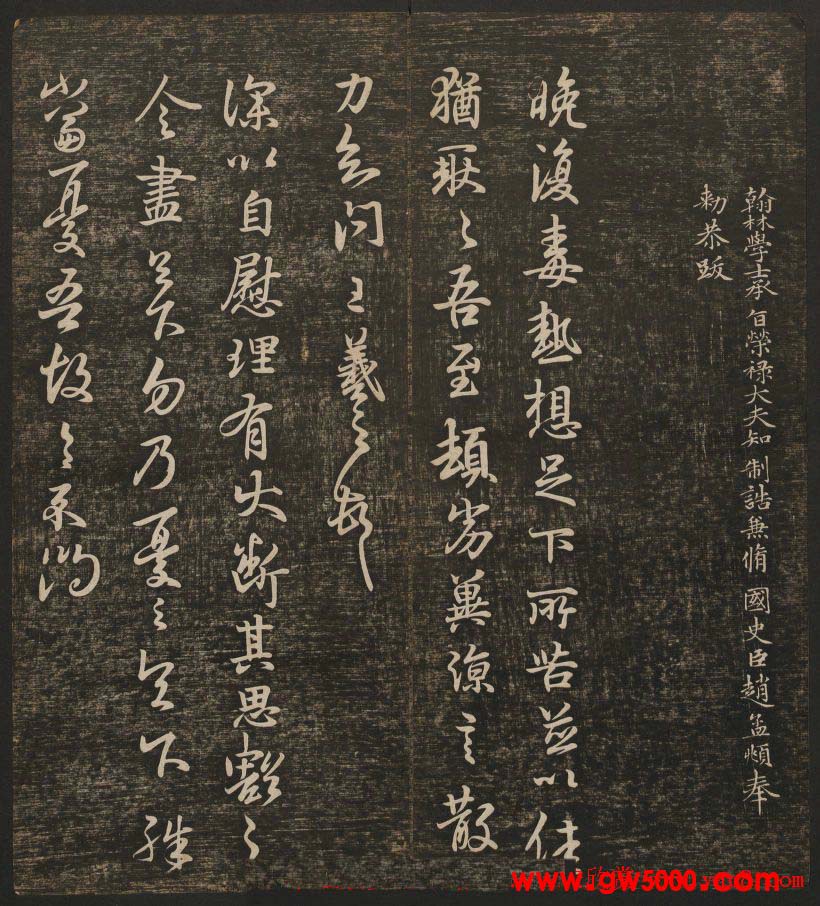 翰林學士承旨榮祿大夫知制誥兼脩國史臣趙孟頫奉
勑恭跋
晚復毒熱想足下所苦並以佳
猶耿々吾至頓劣冀涼言散
力知問王羲之報
深以自慰理有大斷其思豁之
令盡足下勿乃憂之足下殊
當憂吾故具示問
www.gw5000.com